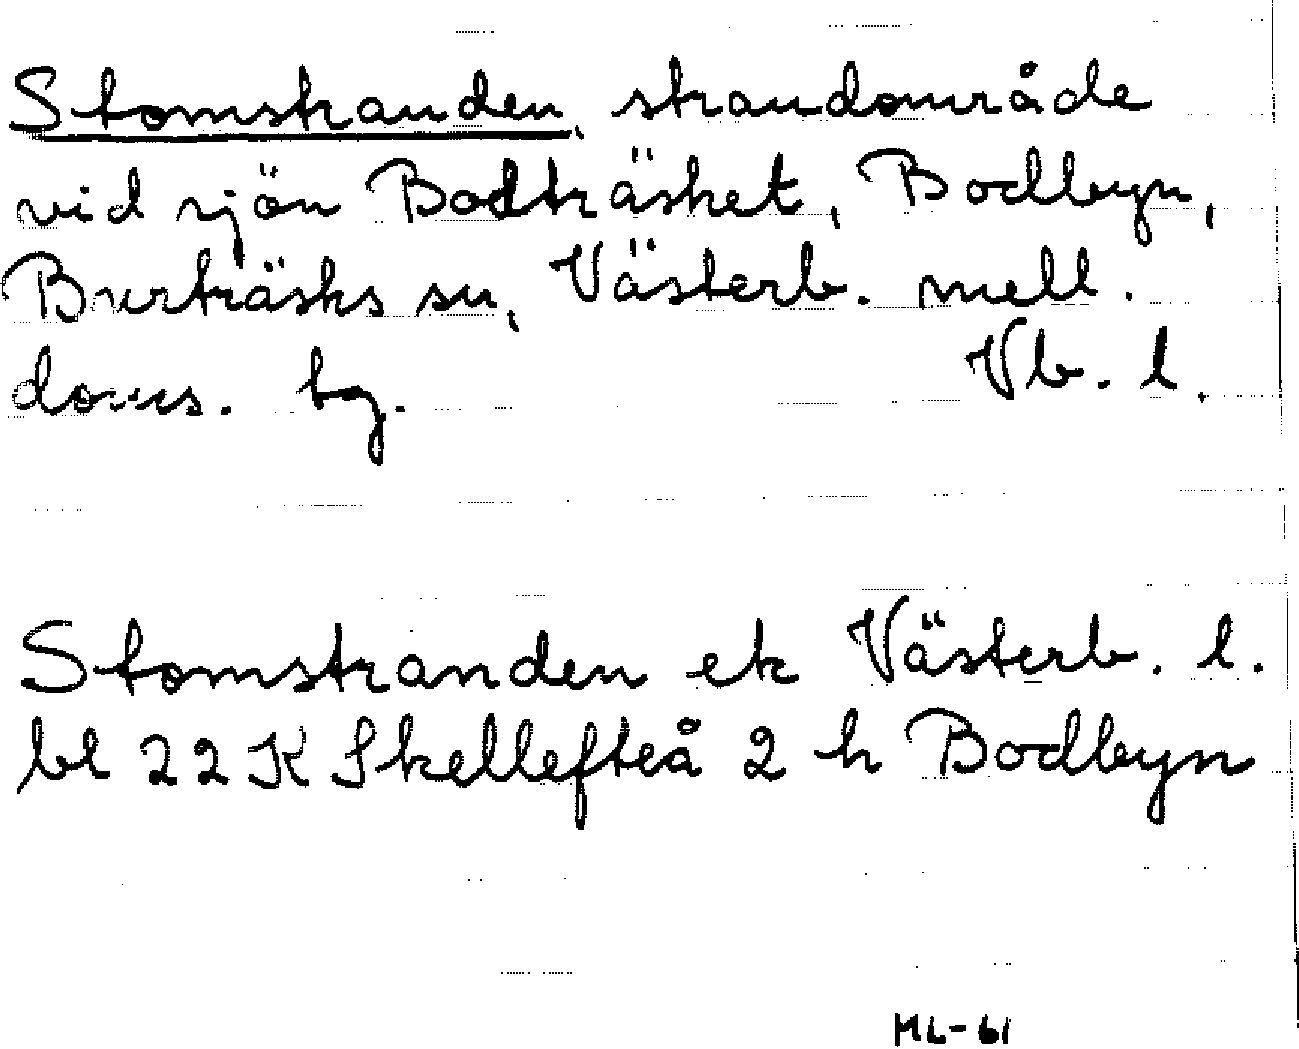 Stomstranden, strandområde
vid sjön Bodträsket, Bodbyn,
Burträsks sn, Västerb. mell.
doms. tg. Vb. l.
Stomstranden ek Västerb. l.
bl 22K Skellefteå 2 h Bodbyn
ML-61